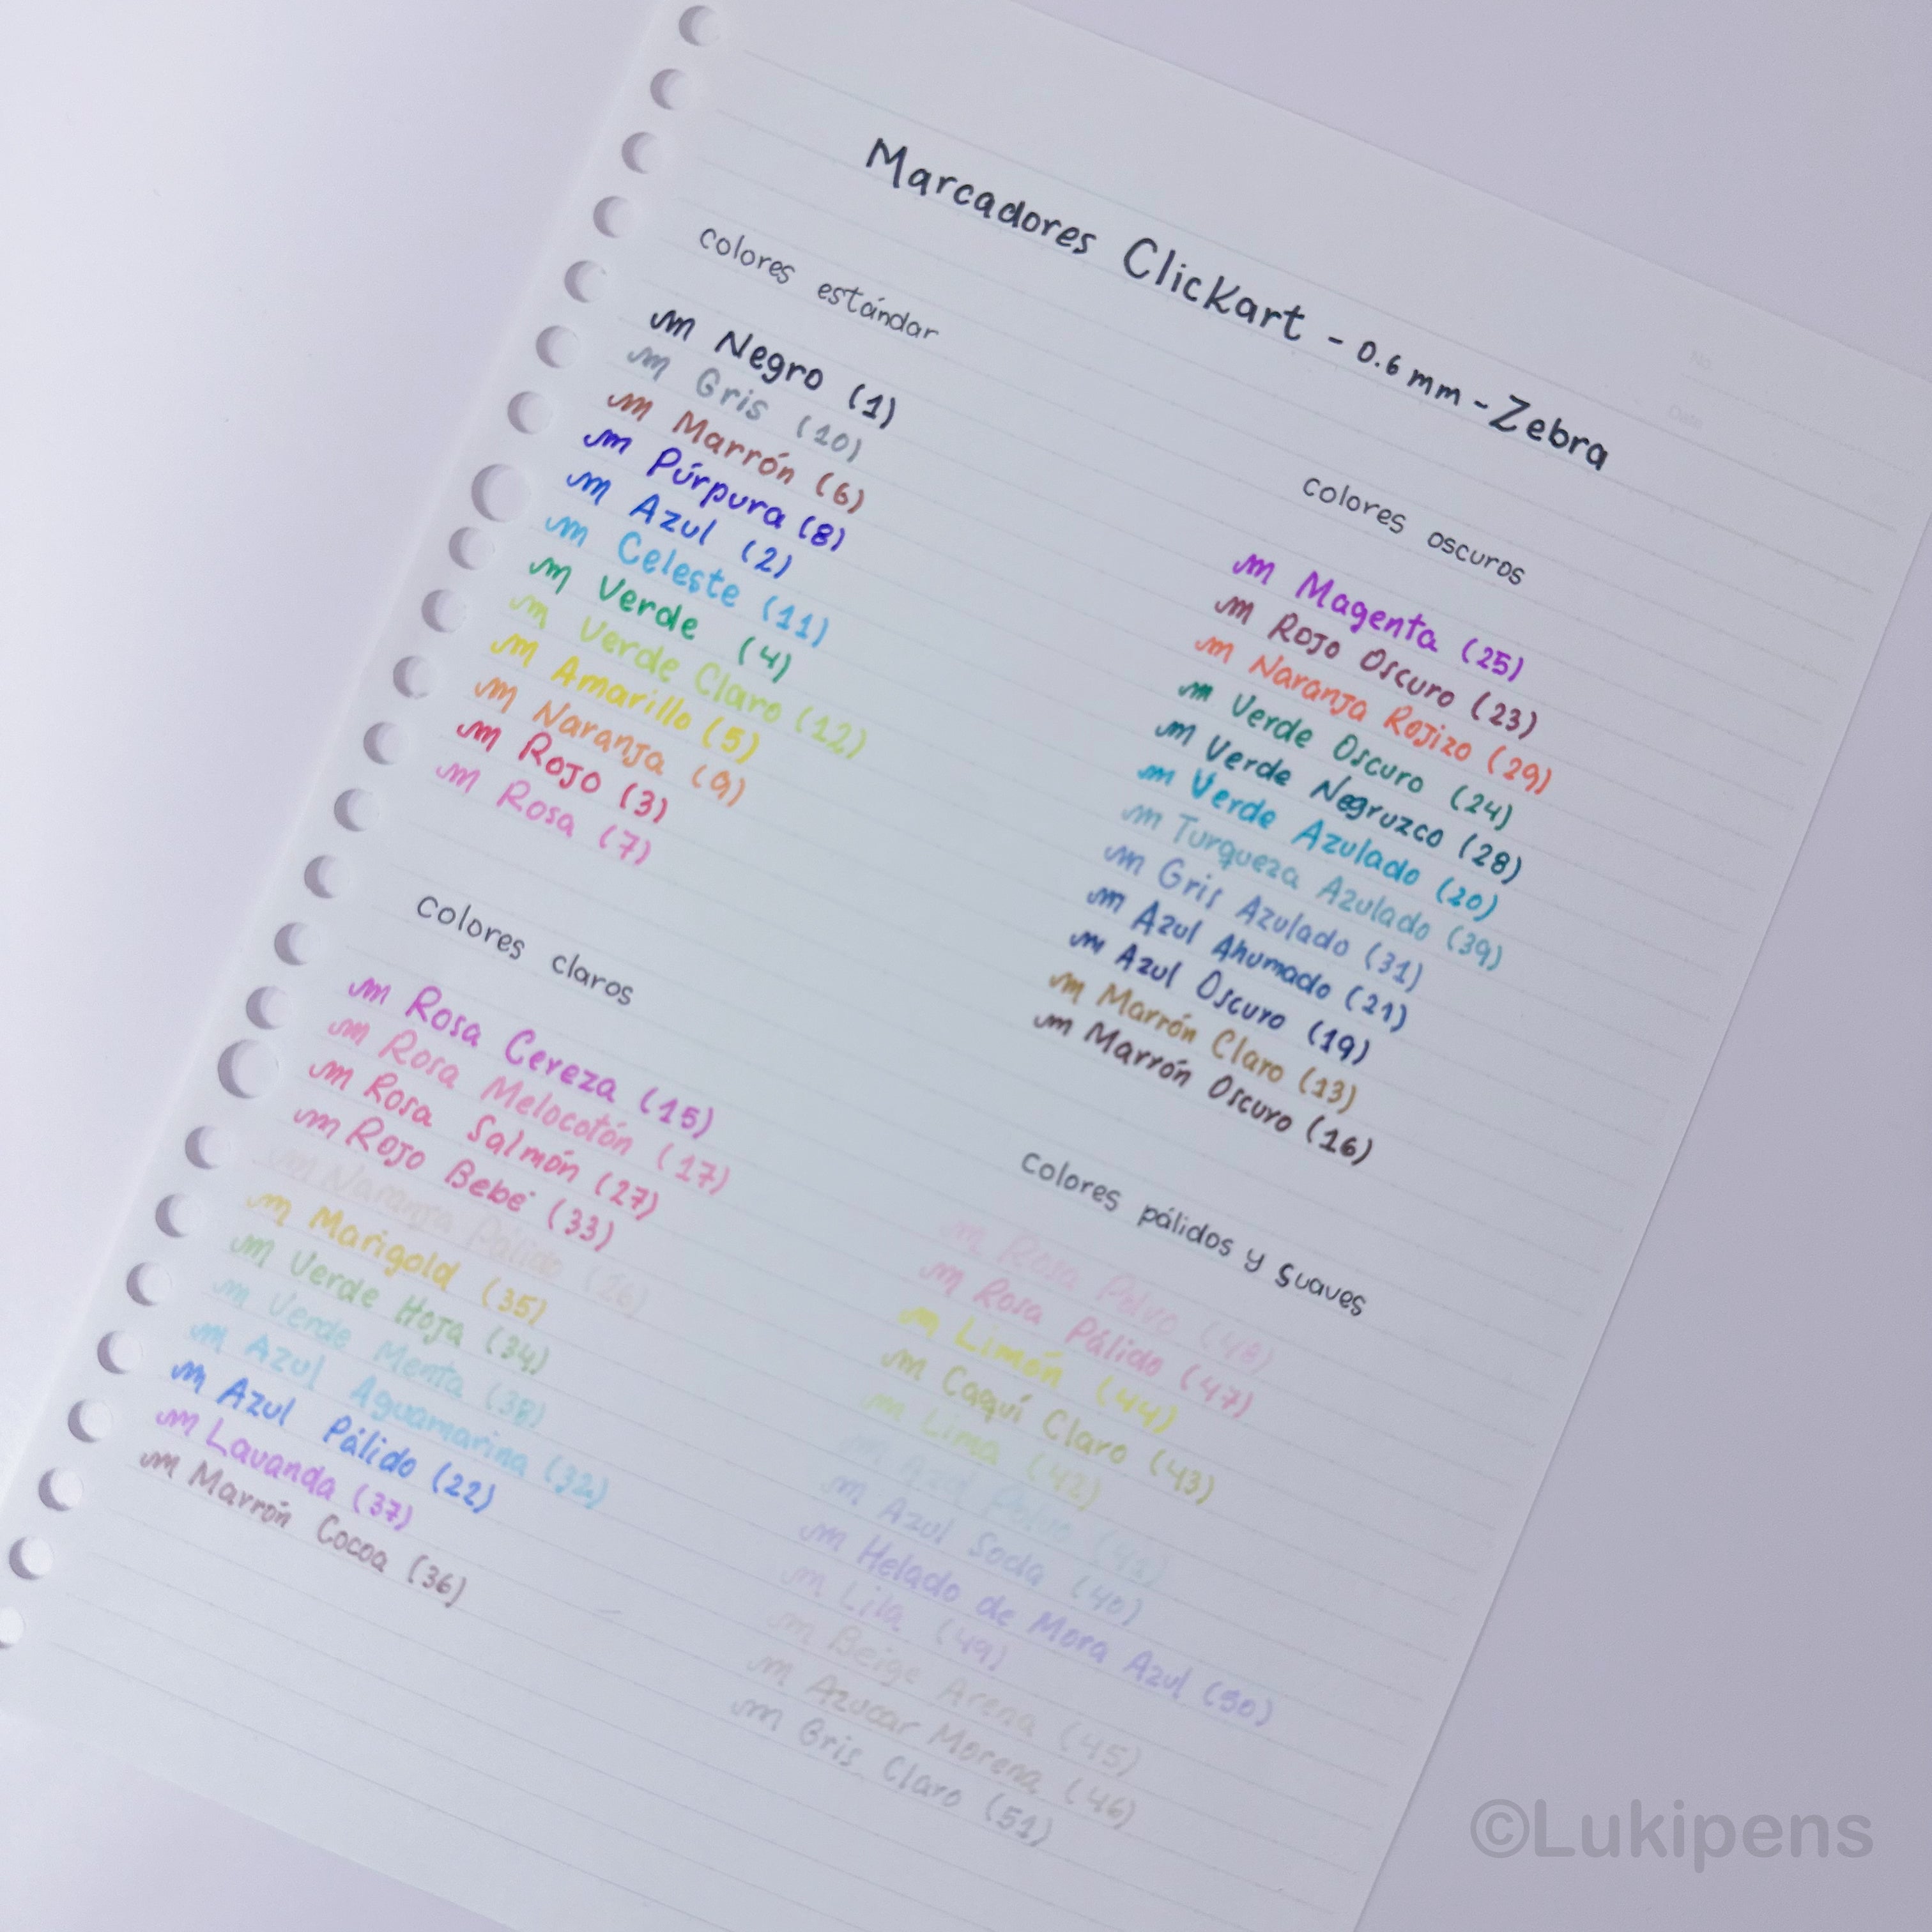 Marcadores Clickart - 0.6 mm - Zebra
colores estándar
Negro (1)
Gris (10)
Marrón (6)
Púrpura (8)
Azul (2)
Celeste (11)
Verde (4)
Verde Claro (12)
Amarillo (5)
Naranja (9)
Rojo (3)
Rosa (7)
colores claros
Rosa Cereza (15)
Rosa Melocotón (17)
Rosa Salmón (27)
Rojo Bebé (33)
Naranja Pálido (26)
Marigold (35)
Verde Hoja (34)
Verde Menta (38)
Azul Aguamarina (32)
Azul Pálido (22)
Lavanda (37)
Marrón Cocoa (36)
colores oscuros
Magenta (25)
Rojo Oscuro (23)
Naranja Rojizo (29)
Verde Oscuro (24)
Verde Negruzco (28)
Verde Azulado (20)
Turqueza Azulado (39)
Gris Azulado (31)
Azul Ahumado (21)
Azul Oscuro (19)
Marrón Claro (13)
Marrón Oscuro (16)
colores pálidos y suaves
Rosa Polvo (48)
Rosa Pálido (47)
Limón (44)
Caquí Claro (43)
Lima (42)
Azul Polvo (41)
Azul Soda (40)
Helado de Mora Azul (50)
Lila (49)
Beige Arena (45)
Azucar Morena (46)
Gris Claro (51)
No.
Date
©Lukipens